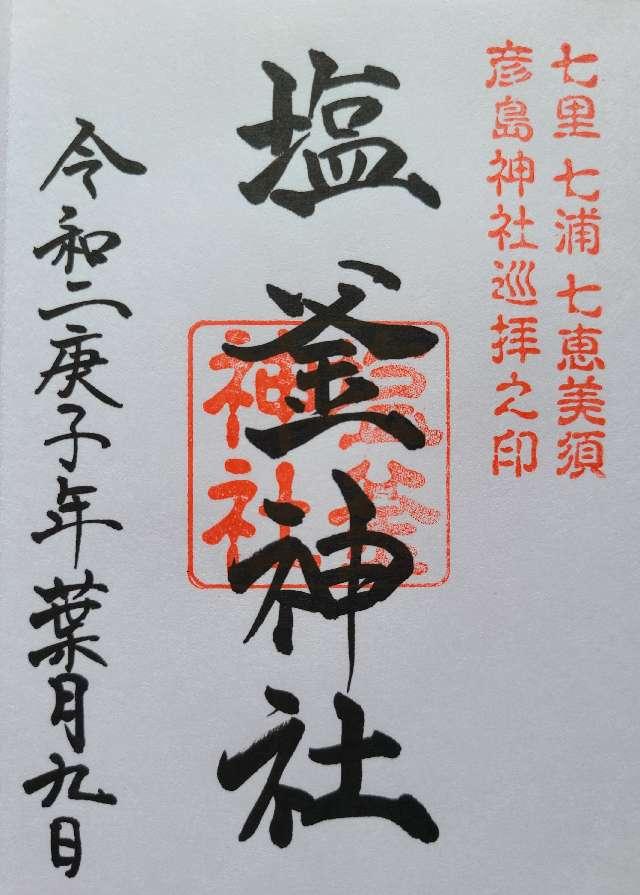 七里七浦七恵美須
彦島神社巡拝之印
塩釜神社
神社
令和二庚子年葉月九日